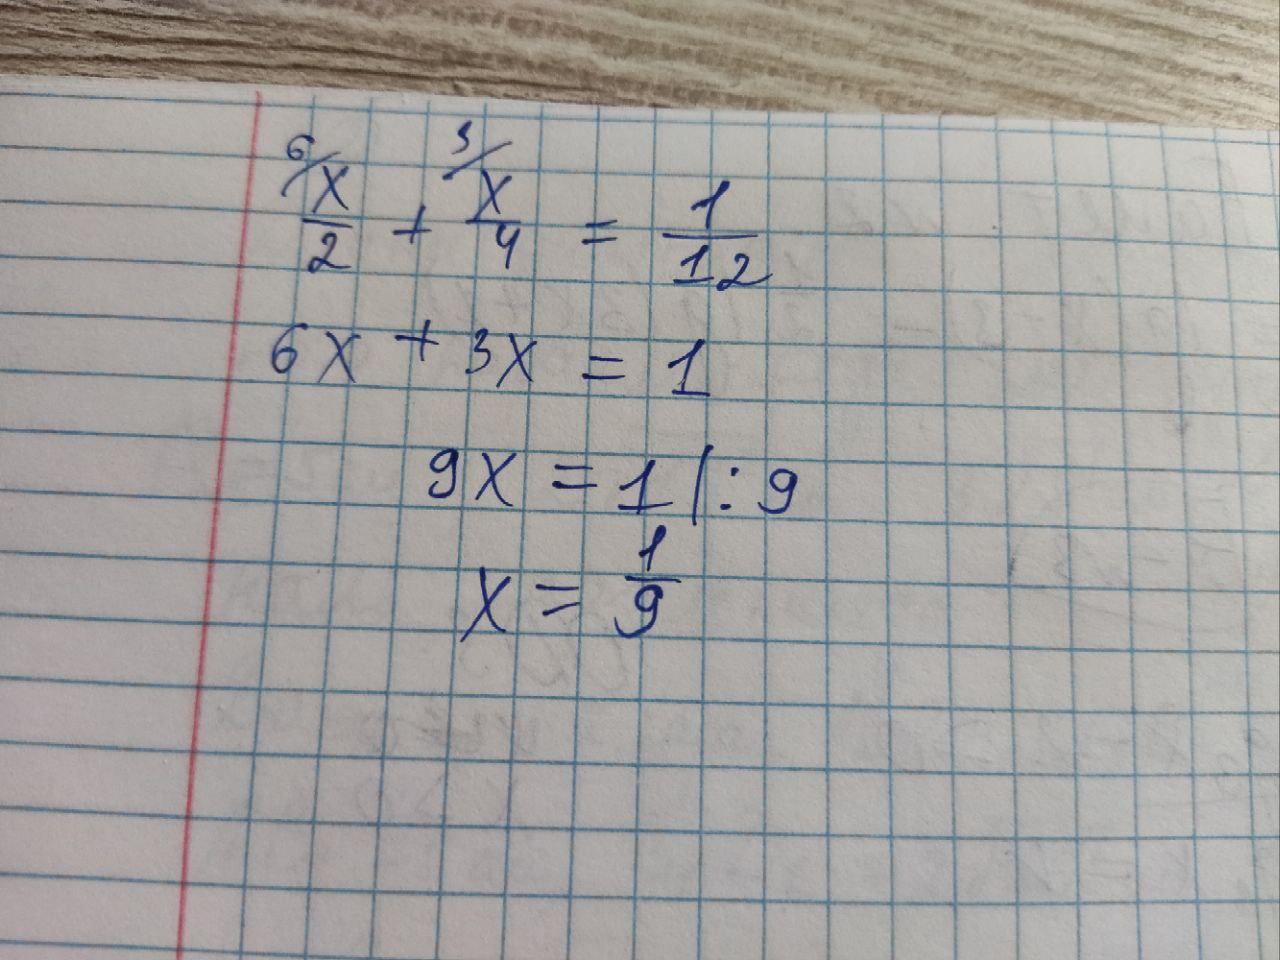 6/ 3/
x/2 + x/4 = 1/12
6x + 3x = 1
9x = 1 | : 9
x = 1/9